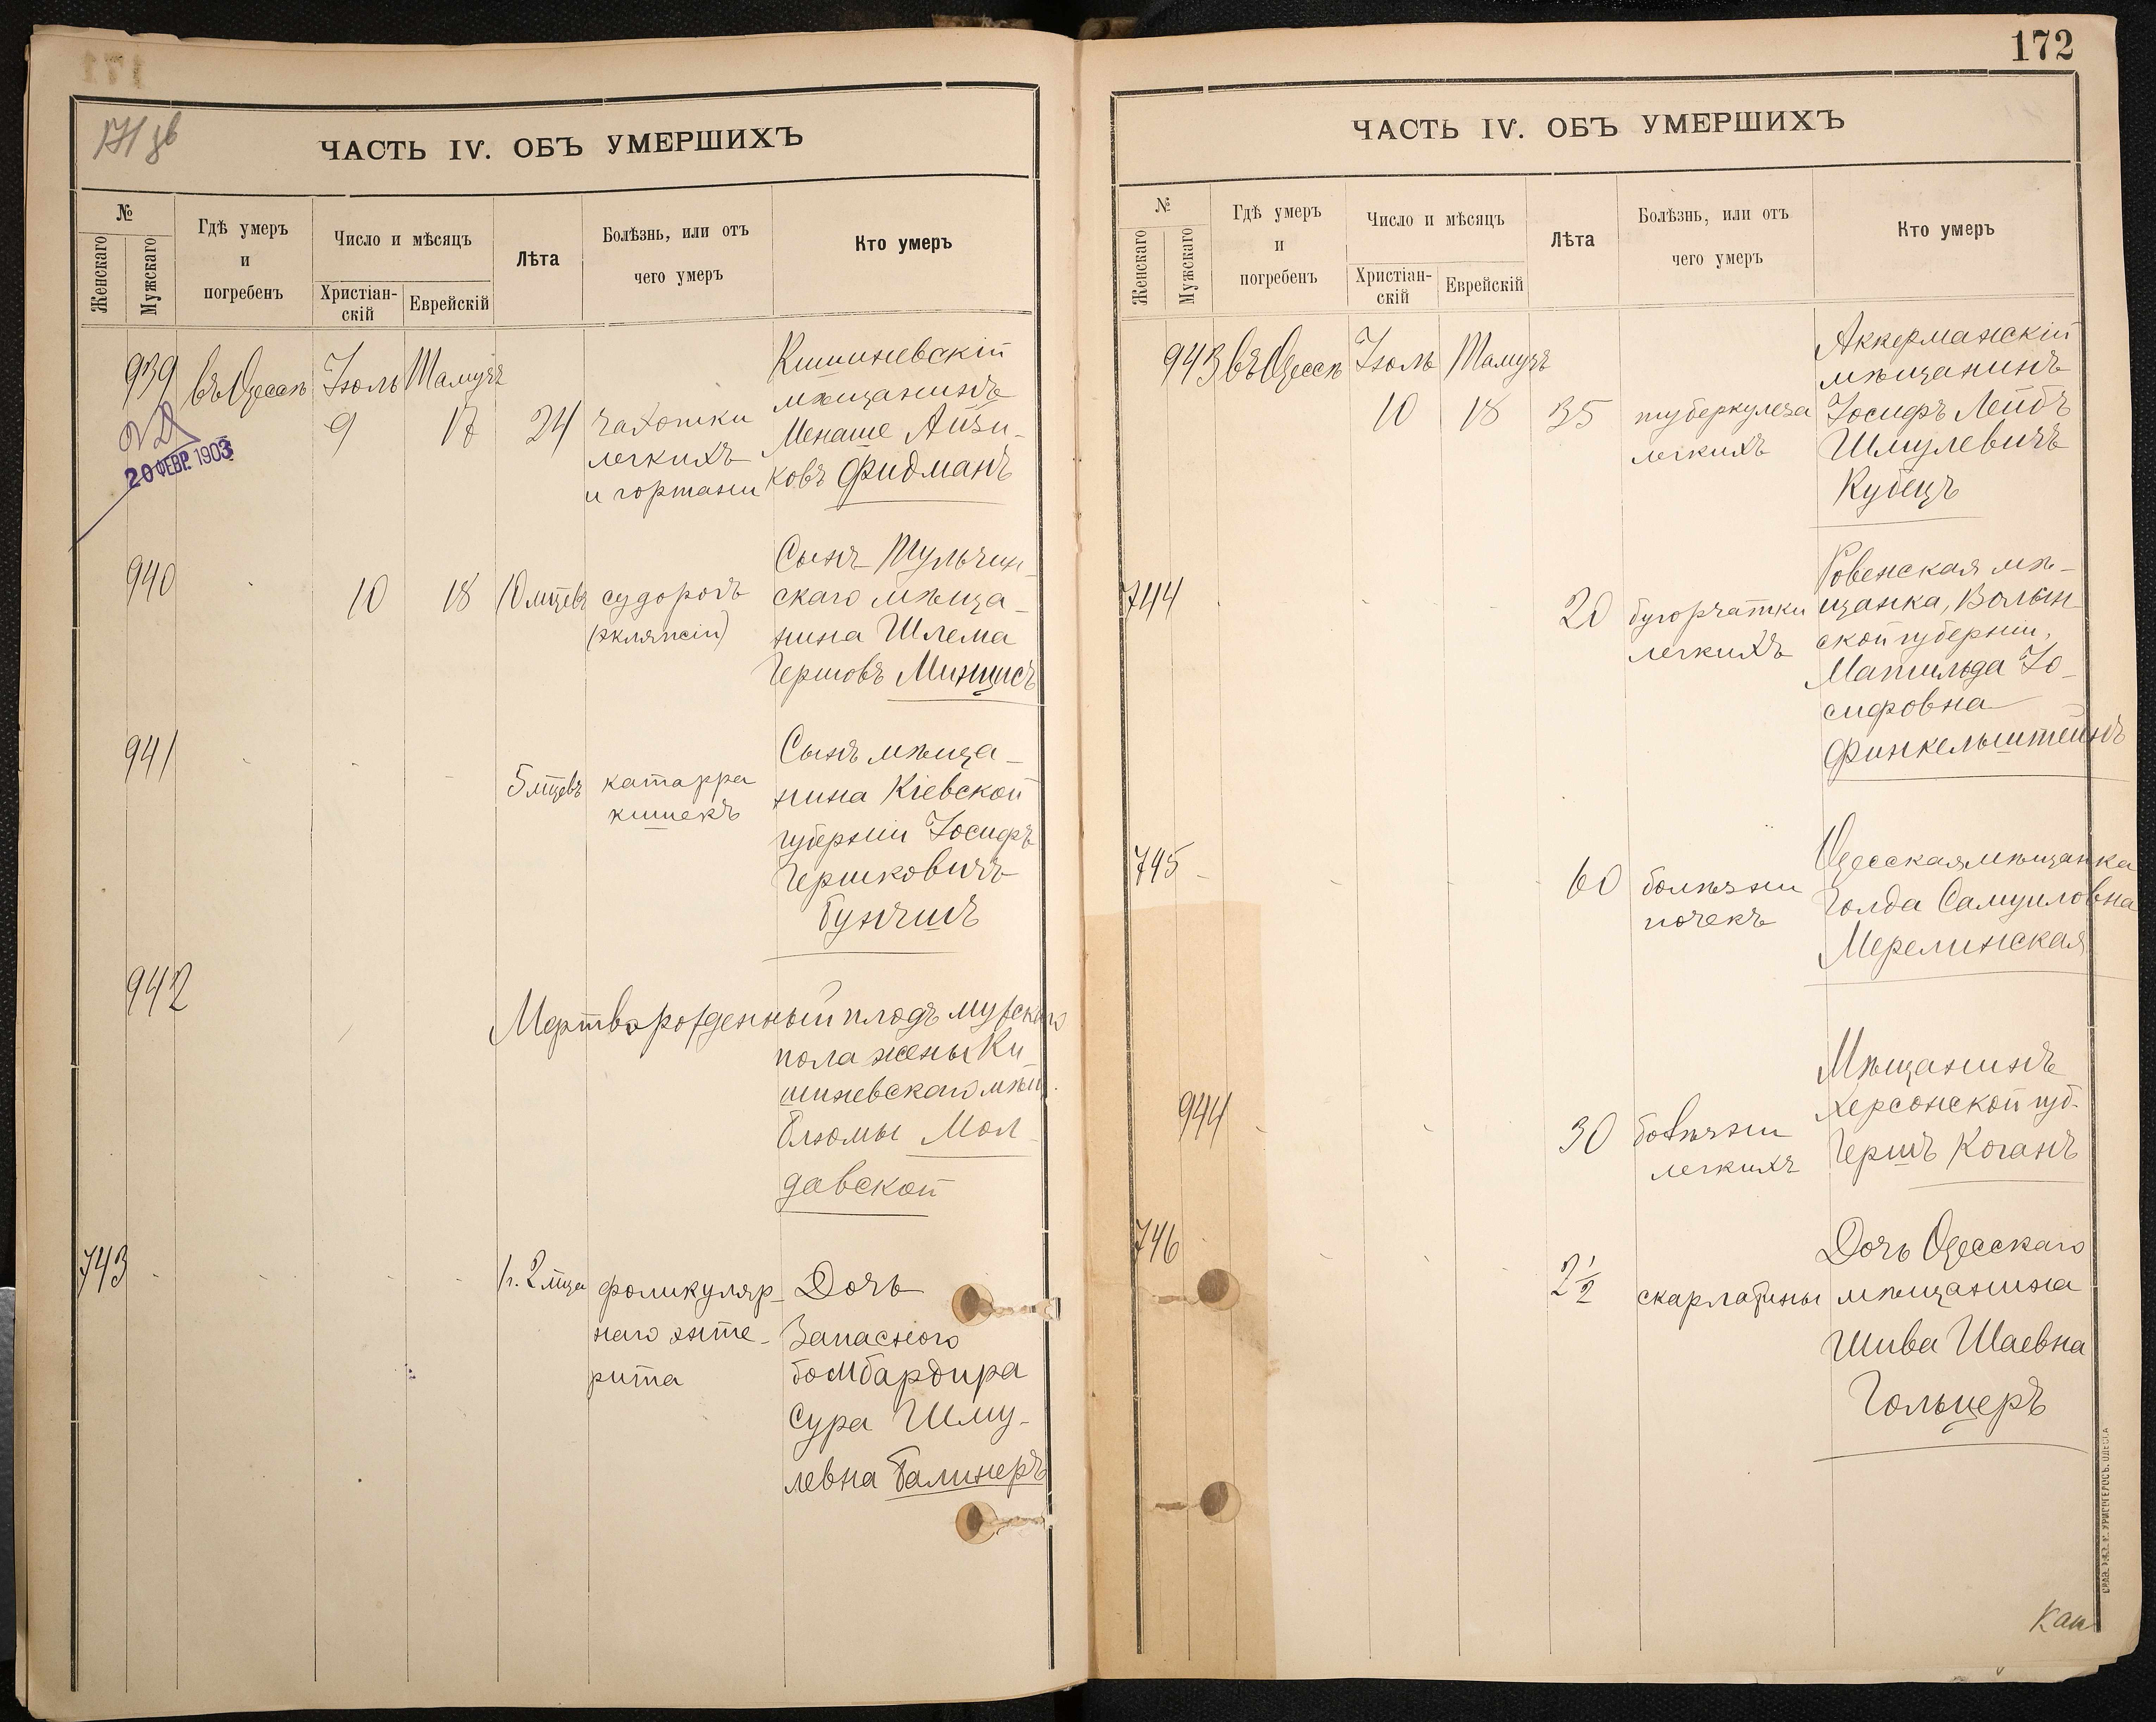 171 зв
ЧАСТЬ IV. ОБЪ УМЕРШИХЪ
№
Женскаго
Мужскаго
Гдѣ умеръ
и
погребенъ
Число и мѣсяцъ
Христіан-
скій
Еврейскій
Лѣта
Болѣзнь, или отъ
чего умеръ
Кто умеръ
939 въ Одессѣ Іюль Тамузъ
9 17 24 чахотки
легкихъ
и гортани
Кишиневскій
мѣщанинъ
Менаше Айзи-
ковъ Фидманъ
20 ФЕВР. 1903
940 10 18 10 мцевъ судорогъ
(эклямпсіи)
Сынъ Тульчин-
скаго мѣща-
нина Шлема
Гершовъ Минцисъ
941 5 мцевъ катарра
кишекъ
Сынъ мѣща-
нина Кіевской
губерніи Іосифъ
Гершковичъ
Бунчикъ
942
Мертворожденный плодъ мужскаго
пола жены Ки-
шиневскаго мѣщ.
Блюмы Мол-
давской
743 1 г. 2 мца фоликуляр-
наго энте-
рита
Дочь
Запаснаго
бомбардира
Сура Шму-
левна Балинеръ
172
ЧАСТЬ IV. ОБЪ УМЕРШИХЪ
№
Женскаго
Мужскаго
Гдѣ умеръ
и
погребенъ
Число и мѣсяцъ
Христіан-
скій
Еврейскій
Лѣта
Болѣзнь, или отъ
чего умеръ
Кто умеръ
943 въ Одессѣ Іюль Тамузъ
10 18 35 туберкулеза
легкихъ
Аккерманскій
мѣщанинъ
Іосифъ Лейбъ
Шмулевичъ
Кубецъ
744 20 бугорчатки
легкихъ
Ровенская мѣ-
щанка, Волын-
ской губерніи,
Матильда Іо-
сифовна
Финкельштейнъ
745 60 болѣзни
почекъ
Одесская мѣщанка
Голда Самуиловна
Мерелинская
944 30 болѣзни
легкихъ
Мѣщанинъ
Херсонской губ.
Гершъ Коганъ
746 2 1/2 скарлатины
Дочь Одесскаго
мѣщанина
Шива Шаевна
Гольцеръ